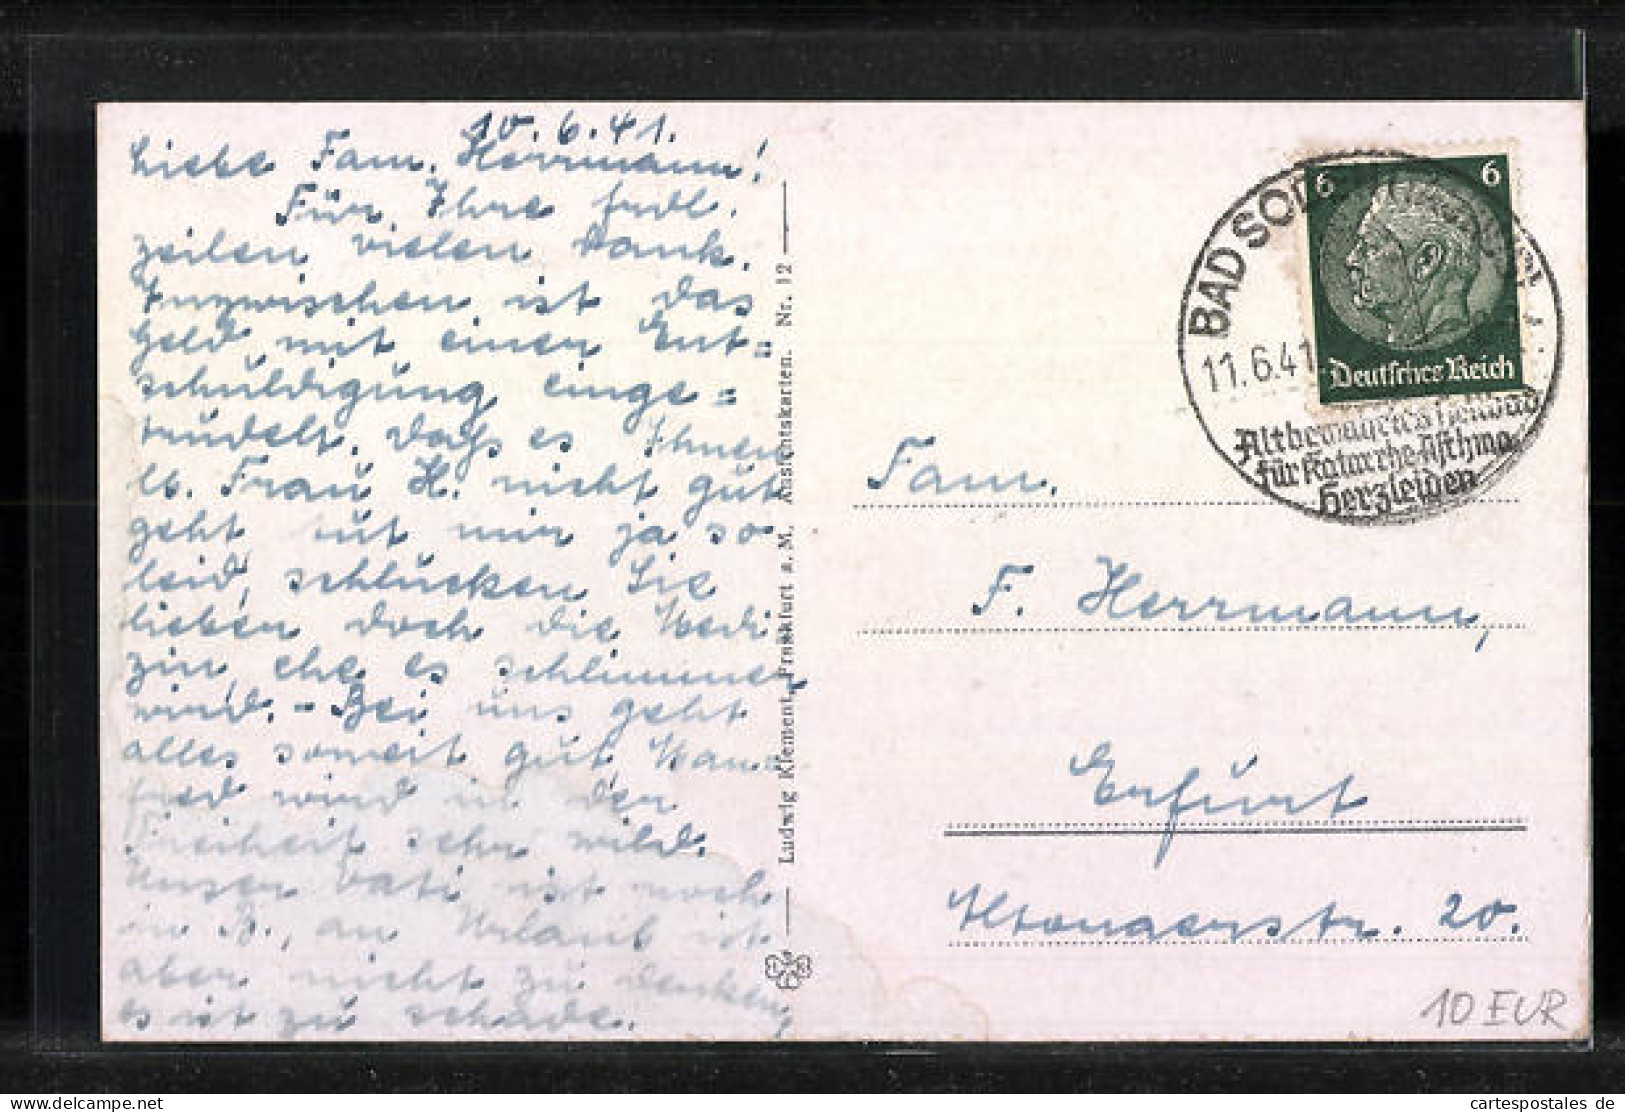 10.6.41.
Liebe Fam. Herrmann!
Für Ihre frdl.
Zeilen vielen Dank.
Inzwischen ist das
Geld mit einer Ent=
schuldigung einge=
trudelt. Dass es Ihnen
lb. Frau H. nicht gut
geht tut mir ja so
leid, schlucken Sie
lieber doch die Medi
zin, ehe es schlimmer
wird. - Bei uns geht
alles soweit gut Man=
fred wird in der
Freiheit sehr wild.
Unser Vati ist noch
in B., an Urlaub ist
aber nicht zu denken,
es ist zu schade.
Ludwig Klement, Frankfurt a. M. Ansichtskarten. Nr. 12
BAD SODEN
11.6.41
Altbewährtes Heilbad
für Katarrhe, Asthma
Herzleiden
6 6
Deutsches Reich
Fam.
F. Herrmann,
Erfurt
Altonaerstr. 20.
10 EUR
cartespostales de